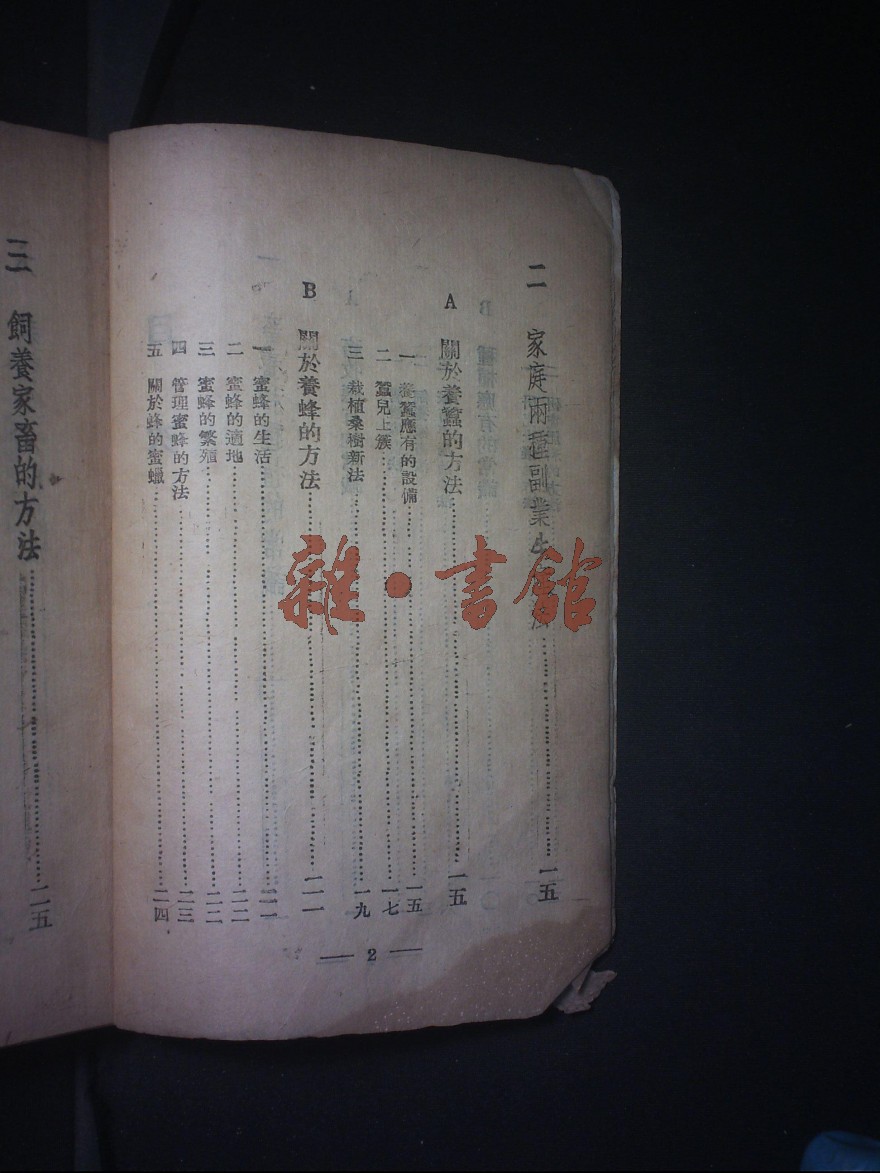 二 家庭兩種副業生……一五
A 關於養蠶的方法……一五
一 養蠶應有的設備……一五
二 蠶兒上簇……一七
三 栽植桑樹新法……一九
B 關於養蜂的方法……二一
一 蜜蜂的生活……二一
二 蜜蜂的適地……二二
三 蜜蜂的繁殖……二二
四 管理蜜蜂的方法……二三
五 關於蜂的蜜蠟……二四
— 2 —
三 飼養家畜的方法……二五
雜·書館